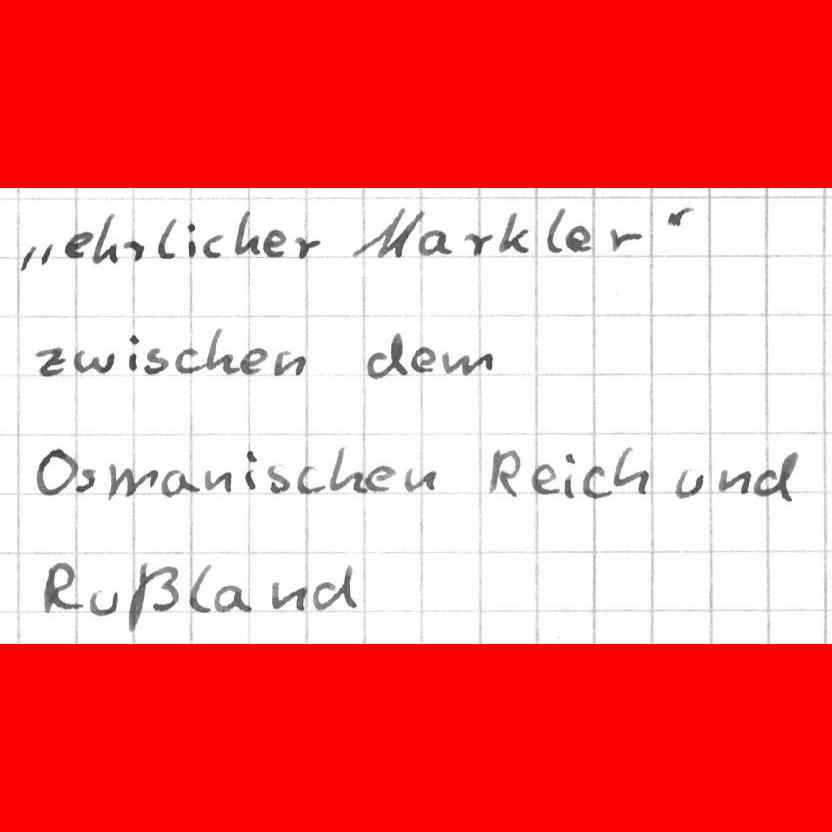 „ehrlicher Markler“
zwischen dem
Osmanischen Reich und
Rußland